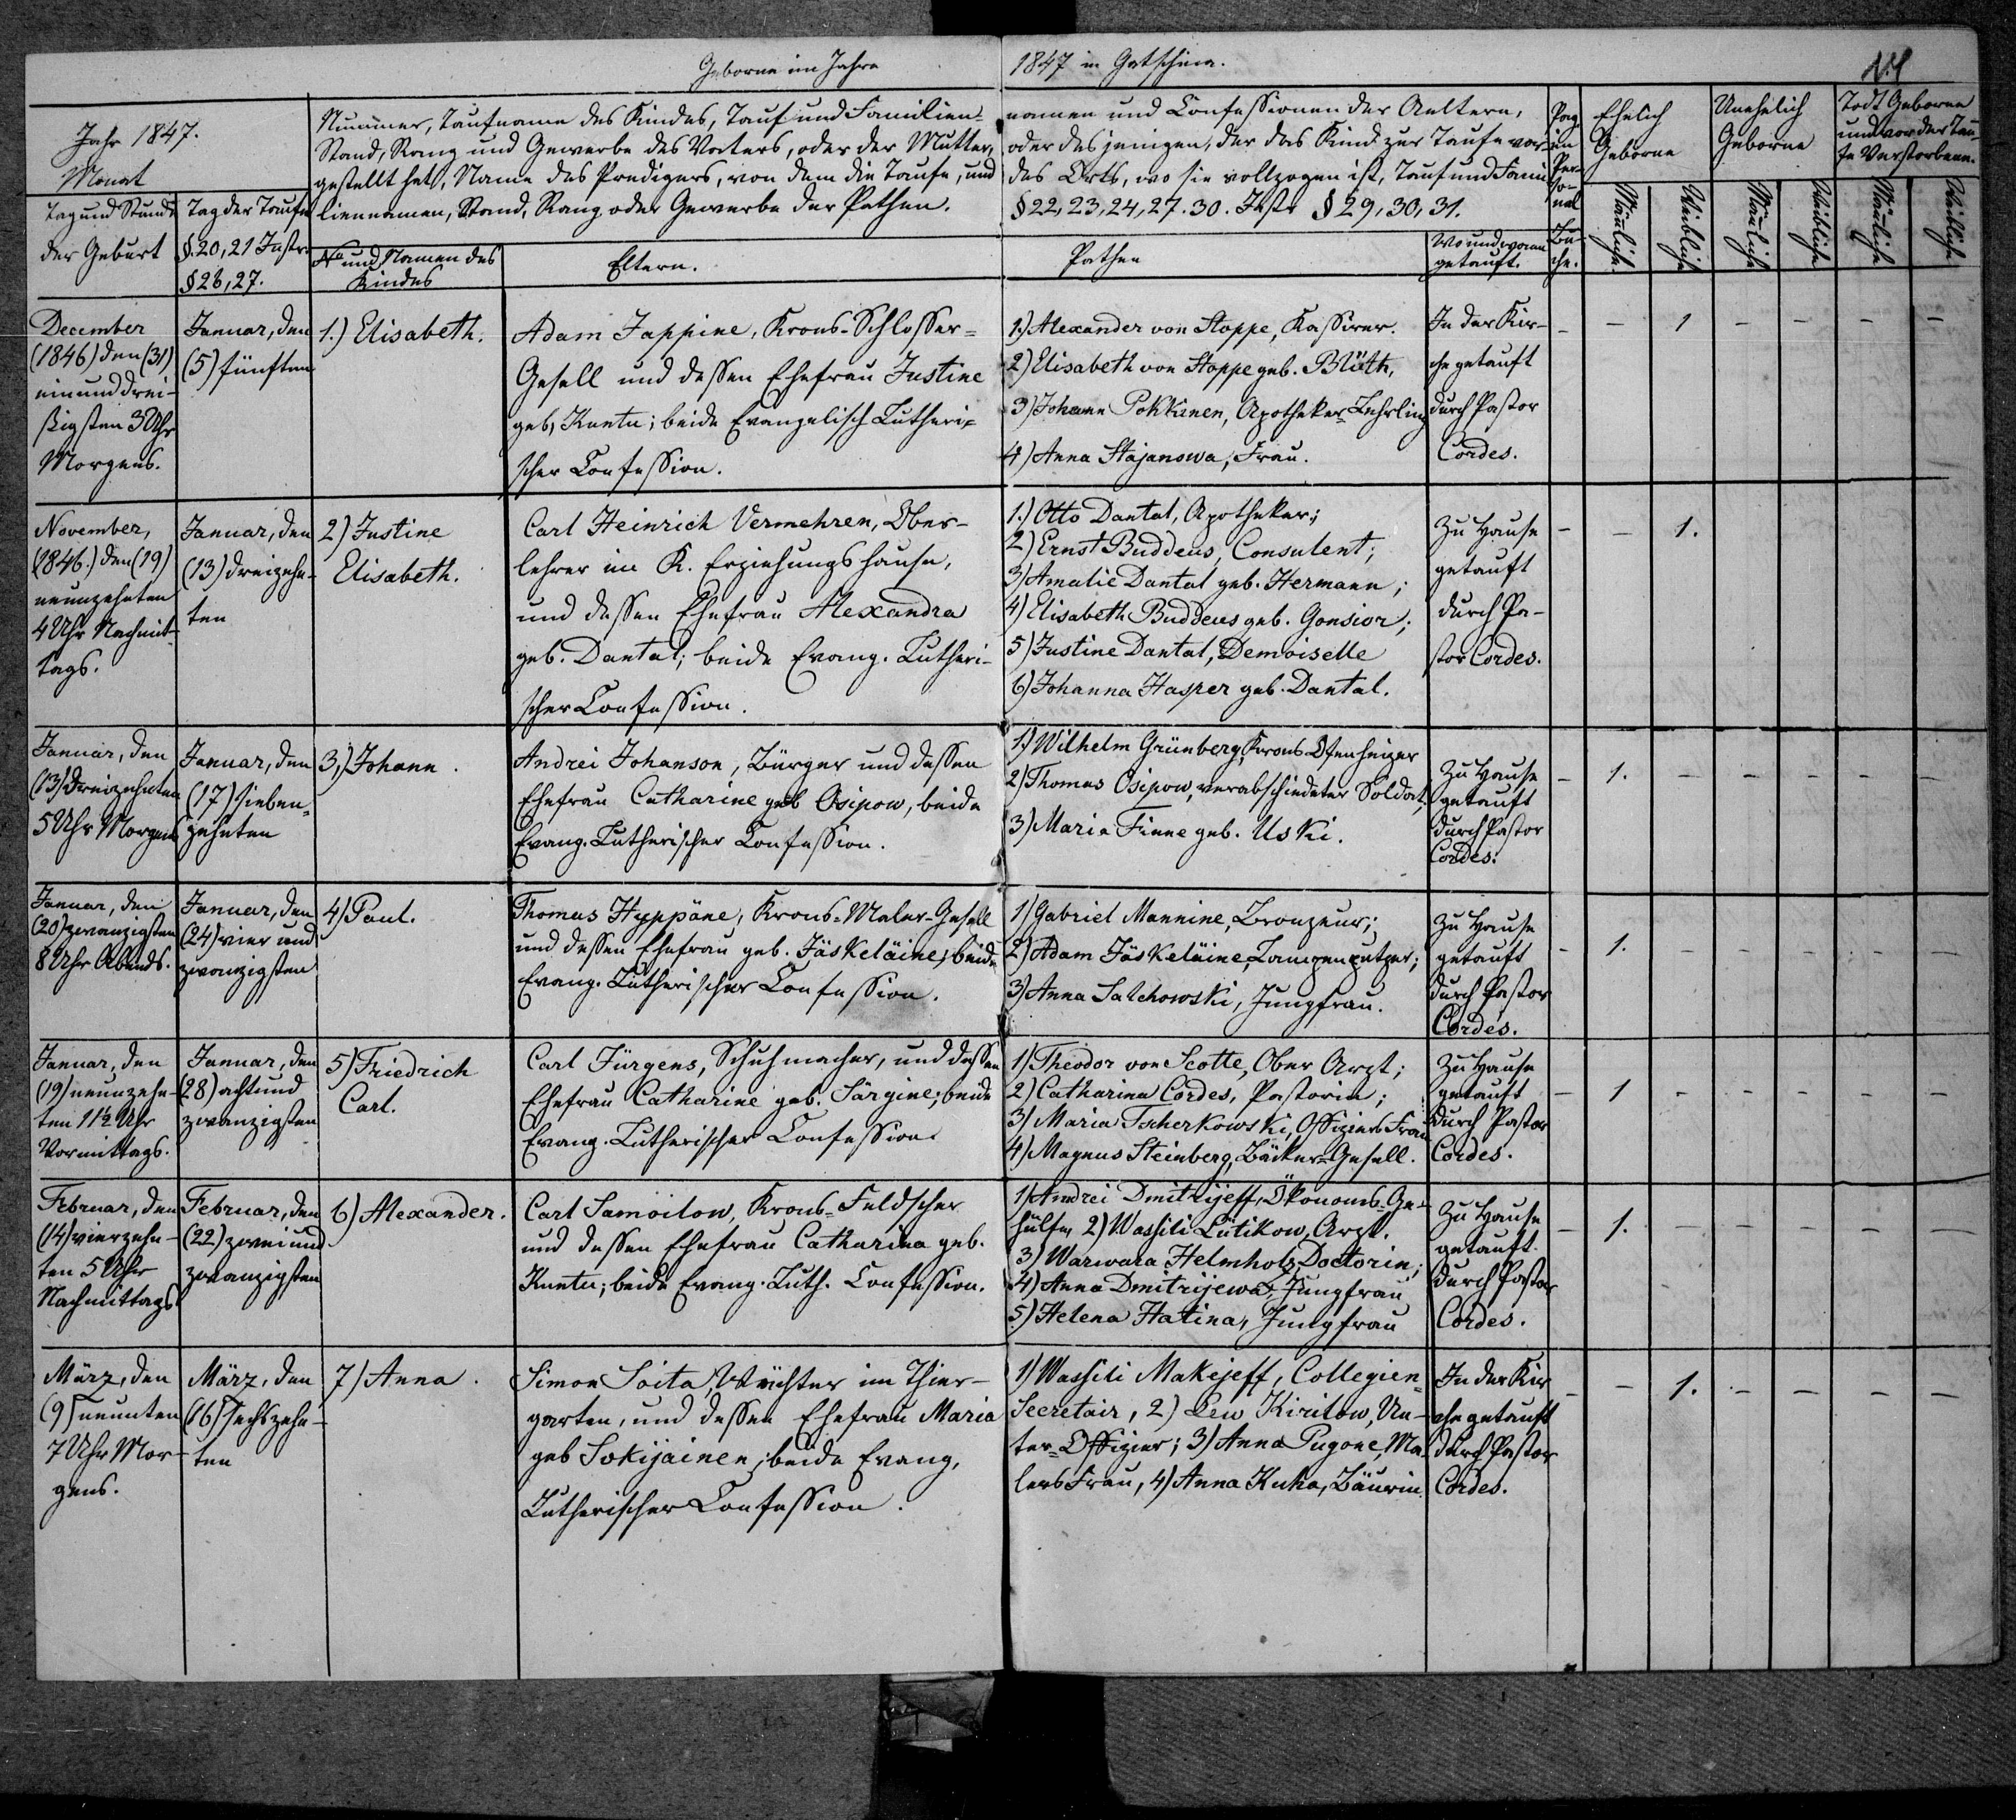 Geborne im Jahre 1847 in Gatschina.
Jahr 1847.
Monat
Tag und Stunde
der Geburt
Tag der Taufe
§. 20, 21 Instr.
§ 26, 27.
Nummer, Taufname des Kindes, Tauf und Familien-
namen und Confessionen der Aeltern,
Stand, Rang und Gewerbe des Vaters, oder der Mutter,
oder des jenigen, der das Kind zur Taufe vor-
gestellt hat, Name des Predigers, von dem die Taufe, und
des Orts, wo sie vollzogen ist, Tauf und Fami
liennamen, Stand, Rang oder Gewerbe der Pathen.
§ 22, 23, 24, 27. 30. Instr § 29, 30, 31.
No und Namen des
Kindes
Eltern.
Pathen
Wo und wovon
getauft.
Pag.
im
Per-
so-
nal
Bu-
che.
Ehelich
Geborne
Unehelich
Geborne
Todt Geborne
und vor der Tau-
fe Verstorbene.
Männliche
Weibliche
Männliche
Weibliche
Männliche
Weibliche
December
(1846) den (31)
ein und drei-
ßigsten 3 Uhr
Morgens.
Januar, den
(5) fünften
1.) Elisabeth.
Adam Jappine, Krons-Schlosser-
Gesell und dessen Ehefrau Justine
geb, Kuntu; beide Evangelisch Lutheri-
scher Confession.
1.) Alexander von Stoppe, Kassirer.
2) Elisabeth von Stoppe geb. Blüth,
3) Johann Pokkinen, Apotheker-Lehrling
4) Anna Stajanowa, Frau.
In der Kir-
che getauft
durch Pastor
Cordes.
– – 1 – – – –
November,
(1846.) den (19)
neunzehnten
4 Uhr Nachmit-
tags.
Januar, den
(13) dreizehn-
ten
2) Justine
Elisabeth.
Carl Heinrich Vermehren, Ober-
lehrer im K. Erziehungshause,
und dessen Ehefrau Alexandra
geb. Dantal; beide Evang. Lutheri-
scher Confession.
1.) Otto Dantal, Apotheker;
2) Ernst Buddeus, Consulent;
3) Amalie Dantal geb. Hermann;
4) Elisabeth Buddeus geb. Gonsior;
5) Justine Dantal, Demoiselle
6) Johanna Hasper geb. Dantal.
Zu Hause
getauft
durch Pa-
stor Cordes.
– – 1.
Januar, den
(13) Dreizehnten
5 Uhr Morgens
Januar, den
(17) sieben-
zehnten
3,) Johann.
Andrei Johanson, Bürger und dessen
Ehefrau Catharine geb Osipow, beide
Evang. Lutherischer Confession.
1.) Wilhelm Grünberg, Krons-Ofenheizer
2) Thomas Osipow, verabschiedeter Soldat,
3) Maria Finne geb. Uski.
Zu Hause
getauft
durch Pastor
Cordes.
– 1. – – – – –
Januar, den
(20) zwanzigsten
8 Uhr Abends.
Januar, den
(24) vier und
zwanzigsten
4) Paul.
Thomas Hyppäne, Krons-Maler-Gesell
und dessen Ehefrau geb. Jäskeläine; beide
Evang. Lutherischer Confession.
1) Gabriel Mannine, Bronzeur;
2) Adam Jäskeläine, Lampenputzer;
3) Anna Salchowski, Jungfrau.
Zu Hause
getauft
durch Pastor
Cordes.
– 1. – – – – –
Januar, den
(19) neunzehn-
ten 11½ Uhr
Vormittags.
Januar, den
(28) acht und
zwanzigsten
5) Friedrich
Carl.
Carl Jürgens, Schuhmacher, und dessen
Ehefrau Catharine geb. Särgine; beide
Evang. Lutherischer Confession.
1) Theodor von Scotte, Ober Arzt;
2) Catharina Cordes, Pastorin;
3) Maria Tscherkowski, Offiziers Frau
4) Magnus Steinberg, Bäcker-Gesell.
Zu Hause
getauft
durch Pastor
Cordes.
– 1 – – – – –
Februar, den
(14) vierzehn-
ten 5 Uhr
Nachmittags
Februar, den
(22) zwei und
zwanzigsten
6) Alexander.
Carl Samoilow, Krons-Feldscher
und dessen Ehefrau Catharina geb.
Kuntu; beide Evang. Luth. Confession.
1) Andrei Dmitrijeff, Ökonoms-Ge-
hülfe, 2) Wassili Lütikow, Arzt.
3) Warwara Helmholz, Doctorin;
4) Anna Dmitrijewa, Jungfrau
5) Helena Hatina, Jungfrau
Zu Hause
getauft.
durch Pastor
Cordes.
– 1. – – – – –
März, den
(9) neunten
7 Uhr Mor-
gens.
März, den
(16) sechszehn-
ten
7) Anna.
Simon Soita, Wächter im Thier-
garten, und dessen Ehefrau Maria
geb Sokijainen; beide Evang,
Lutherischer Confession.
1) Wassili Makejeff, Collegien-
Secretair, 2) Lew Kirilow, Un-
ter-Offizier; 3) Anna Pugone, Ma-
lers Frau, 4) Anna Kuha, Bäurin
In der Kir
che getauft
durch Pastor
Cordes.
– – 1. – – – –